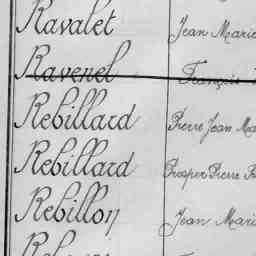 Ravalet Jean Marie
Ravenel François
Rebillard Pierre Jean Ma
Rebillard Prosper Pierre
Rebillon Jean Mari